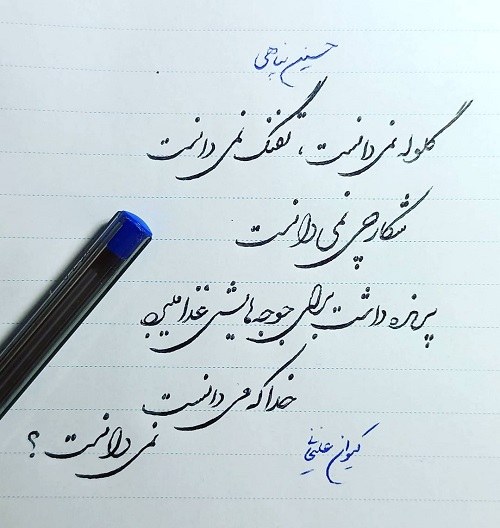 حسین پناهی
گلوله نمی‌دانست ، تفنگ نمی‌دانست
شکارچی نمی‌دانست
پرنده داشت برای جوجه‌هایش غذا می‌برد
خدا که می‌دانست
نمی‌دانست ؟
کیوان علیخانی